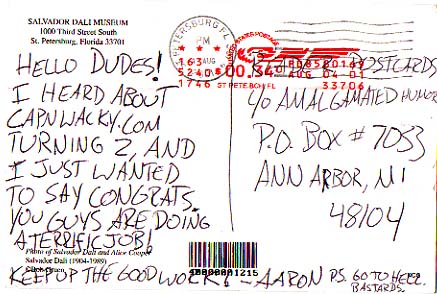 SALVADOR DALI MUSEUM
1000 Third Street South
St. Petersburg, Florida 33701
HELLO DUDES!
I HEARD ABOUT
CAPNWACKY.COM
TURNING 2, AND
I JUST WANTED
TO SAY CONGRATS.
YOU GUYS ARE DOING
A TERRIFIC JOB!
Photo of Salvador Dali and Alice Cooper
Salvador Dali (1904-1989)
KEEP UP THE GOOD WORK! - AARON P.S. GO TO HELL.
BASTARDS.
PETERSBURG FL
PM
AUG
UNITED STATES POSTAGE
00.34
AUG 04 01
1746 ST PETE BCH FL 33706
POSTCARDS
C/O AMALGAMATED HUMOR
P.O. BOX # 7053
ANN ARBOR, MI
48104